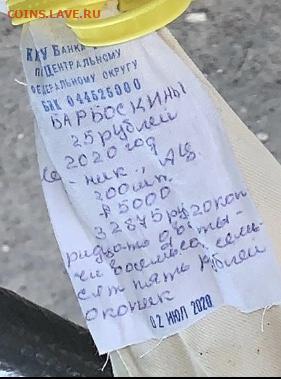 COINS.LAVE.RU
ККУ БАНКА
П ЦЕНТРАЛЬНОМУ
ФЕДЕРАЛЬНОМУ ОКРУГУ
БИК 044525000
БАРБОСКИНЫ
25 рублей
2020 год
-ник., АЦ.
200 шт.
5000
32875 руб 20 коп
ридцать два ты-
чи восемьсот семь-
сят пять рублей
0 копеек
02 ИЮЛ 2020